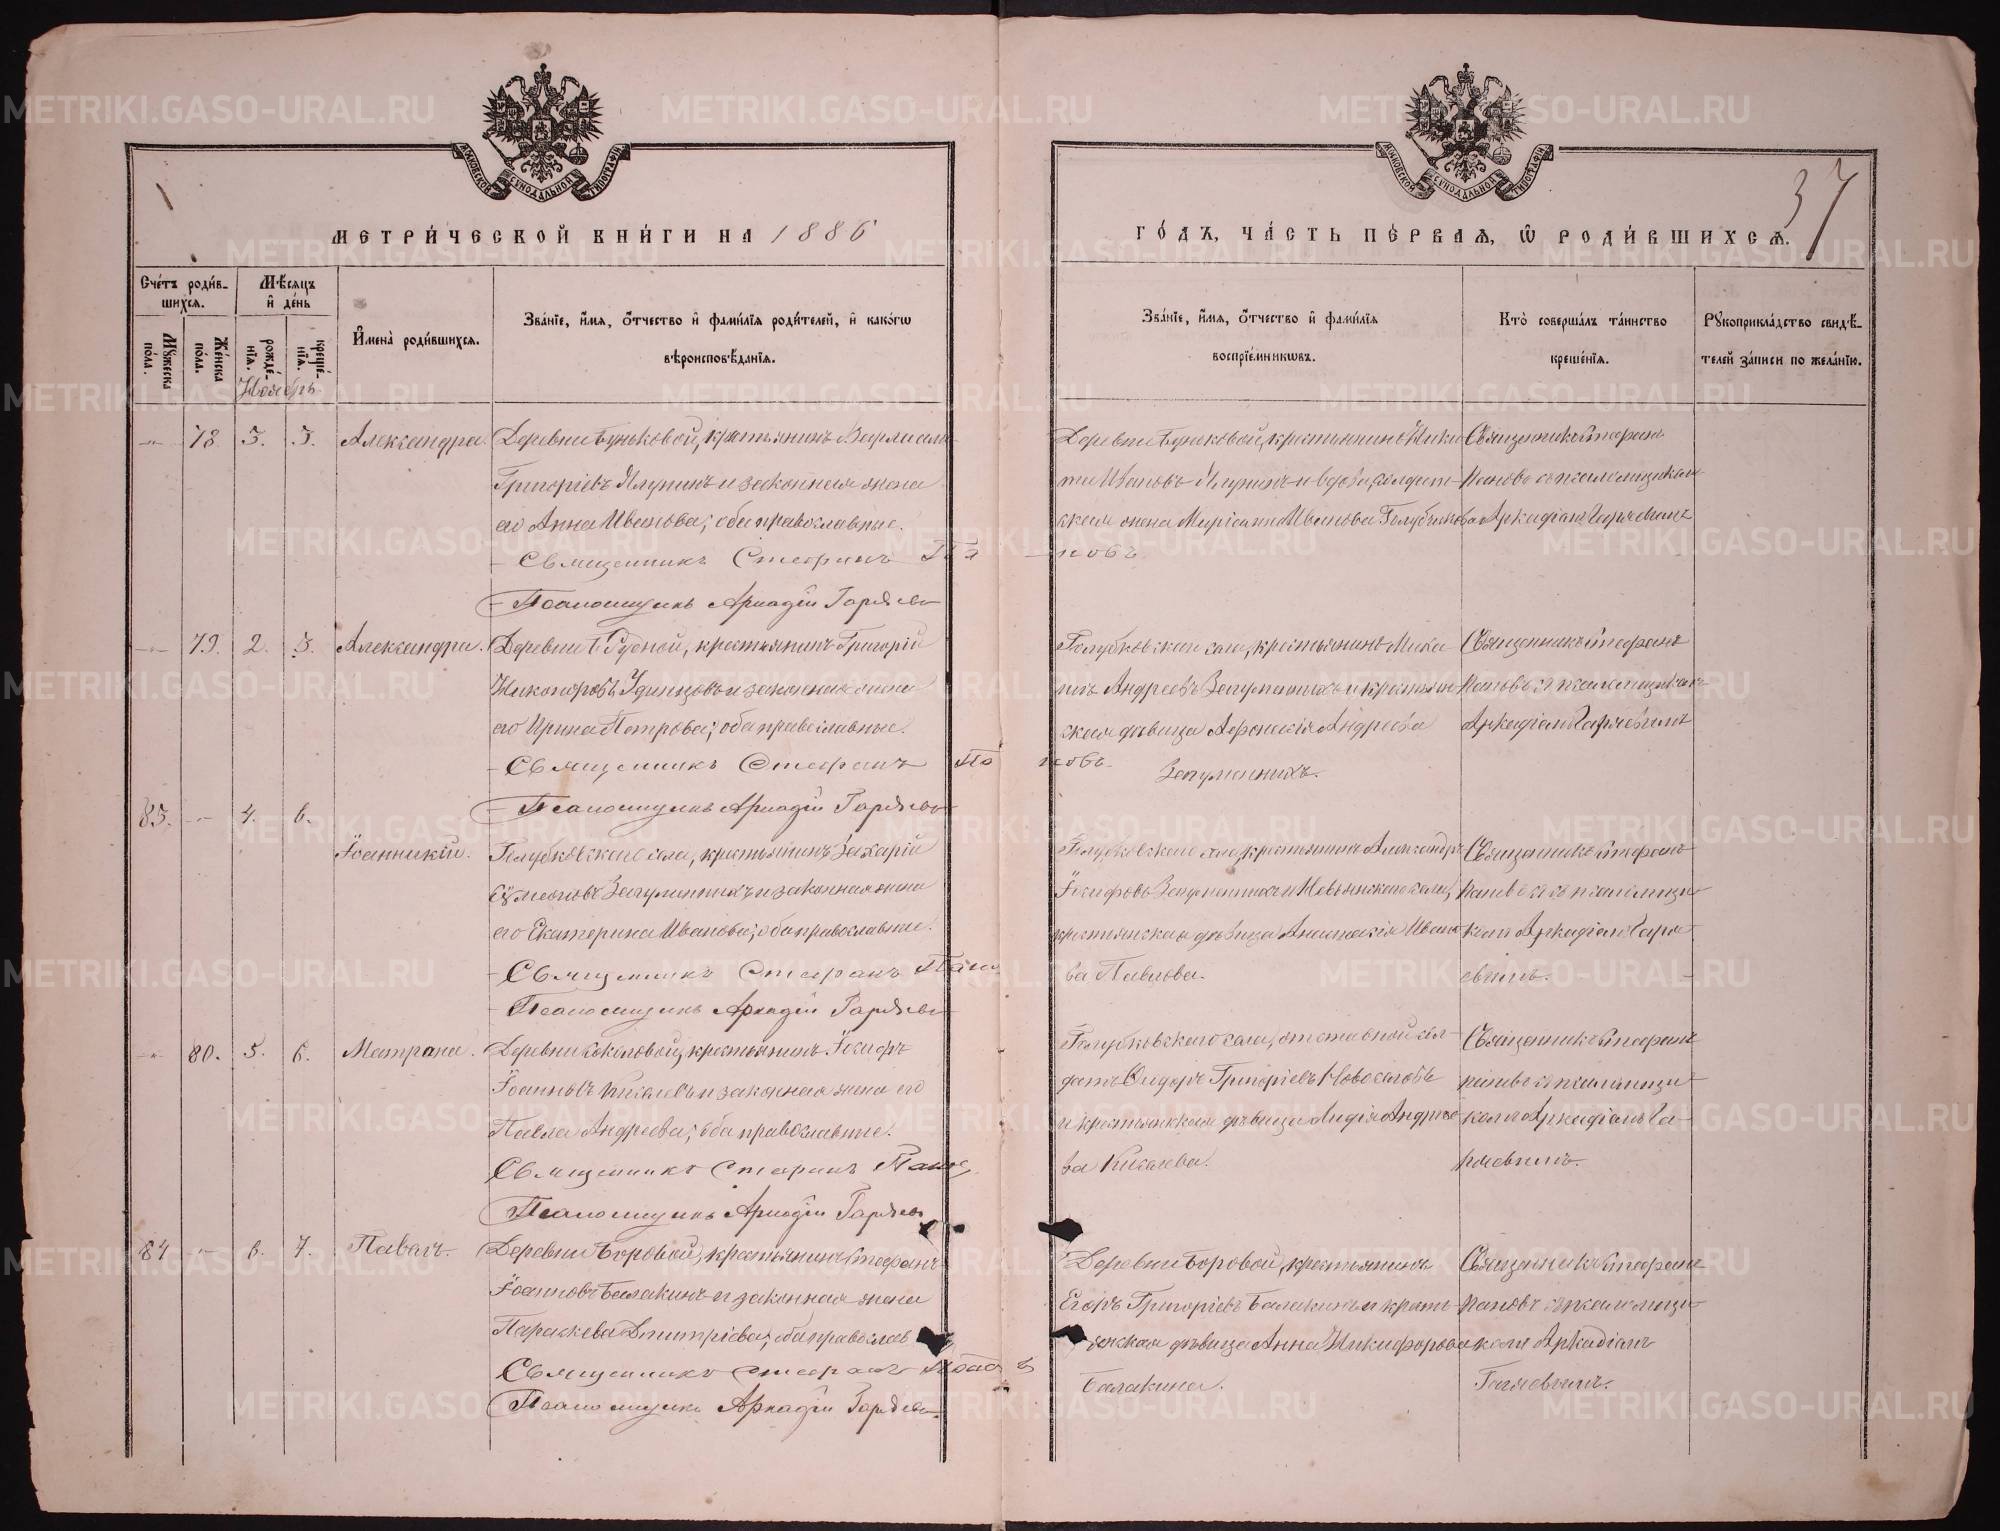 МОСКОВСКОЙ СѴНОДАЛЬНОЙ ТИПОГРАФІИ
МОСКОВСКОЙ СѴНОДАЛЬНОЙ ТИПОГРАФІИ
37
МЕТРИ́ЧЕСКОЙ КНИ́ГИ НА 1886
ГО́ДЪ, ЧА́СТЬ ПЕ́РВАѦ, Ѡ РОДИ́ВШИХСѦ.
Сче́тъ роди́в-
шихсѧ.
Мѣ́сѧцъ
и҆ де́нь
Мꙋ́жеска по́ла.
Же́нска по́ла.
рожде́-нїѧ.
креще́-нїѧ.
И҆мена̀ роди́вшихсѧ.
Зва́нїе, и҆́мѧ, ѻ҆́тчество и҆ фами́лїѧ роди́телей, и҆ како́гѡ
вѣроисповѣ́данїѧ.
Зва́нїе, и҆́мѧ, ѻ҆́тчество и҆ фами́лїѧ
воспрїе́мникѡвъ.
Кто̀ соверша́лъ та́инство
креще́нїѧ.
Рꙋкоприкла́дство свидѣ́-
телей за́писи по жела́нїю.
Ноябрь
78. 3. 3. Александра. Деревни Буньковой, крестьянинъ
Григоріевъ Ялунинъ и законная жена
его Анна Иванова; оба православные.
Священникъ Стефанъ Поповъ
Псаломщикъ Аркадій Гаряевъ
Деревни Буньковой, крестьянинъ Ники-
та Ивановъ Ялунинъ и вдова, солдат-
ская жена Иванова
Священникъ Стефанъ
Поповъ съ псаломщикомъ
Аркадіемъ Гаряевымъ
79. 2. 3. Александра. Деревни крестьянинъ Григорій
Никоноровъ Удинцовъ и законная жена
его Ирина Петрова; оба православные.
Священникъ Стефанъ Поповъ
Псаломщикъ Аркадій Гаряевъ
Голубковскаго села, крестьянинъ Миха-
илъ Андреевъ Загуменныхъ и крестьян-
ская дѣвица Андреева
Загуменныхъ.
Священникъ Стефанъ
Поповъ съ псаломщикомъ
Аркадіемъ Гаряевымъ
83. 4. 6.
Іоанникій. Голубковскаго села, крестьянинъ Захарій
Загуменныхъ и законная жена
его Екатерина Иванова; оба православные.
Священникъ Стефанъ Поповъ
Псаломщикъ Аркадій Гаряевъ
Голубковскаго села, крестьянинъ Александръ
Іосифовъ Загуменныхъ и Невьянскаго села,
крестьянская дѣвица Анастасія Ивано-
ва Павлова.
Священникъ Стефанъ
Поповъ съ псаломщи-
комъ Аркадіемъ Гаря-
евымъ.
80. 5. 6. Матрона. Деревни Соколовой, крестьянинъ Іосифъ
Іоанновъ и законная жена его
Павла Андреева; оба православные.
Священникъ Стефанъ Поповъ
Псаломщикъ Аркадій Гаряевъ
Голубковскаго села, отставной сол-
датъ Сидоръ Григоріевъ Новоселовъ
и крестьянская дѣвица Лидія Андрее-
ва
Священникъ Стефанъ
Поповъ съ псаломщи-
комъ Аркадіемъ Га-
ряевымъ.
84 6. 7. Павелъ. Деревни Боровой, крестьянинъ Стефанъ
Іоанновъ Балакинъ и законная жена
Параскева Димитріева; оба православ
Священникъ Стефанъ Поповъ
Псаломщикъ Аркадій Гаряевъ
Деревни Боровой, крестьянинъ
Егоръ Григоріевъ Балакинъ и кресть-
янская дѣвица Анна Никифорова
Балакина.
Священникъ Стефанъ
Поповъ съ псаломщи-
комъ Аркадіемъ
Гаряевымъ.
METRIKI.GASO-URAL.RU